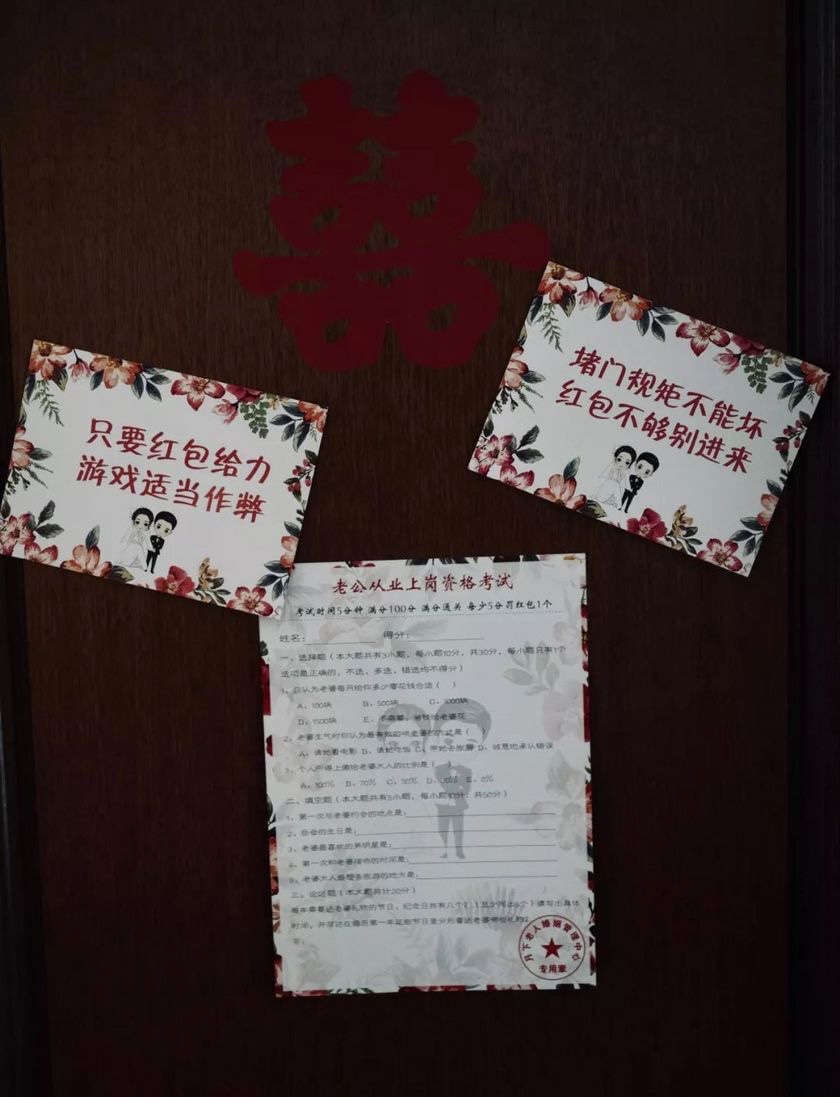 囍
堵门规矩不能坏
红包不够别进来
只要红包给力
游戏适当作弊
老公从业上岗资格考试
考试时间5分钟 满分100分 满分通关 每少5分罚红包1个
姓名: 得分:
一、选择题(本大题共有3小题,每小题10分,共30分,每小题只有1个
选项是正确的,不选、多选、错选均不得分)
1、你认为老婆每月给你多少零花钱合适( )
A、100块 B、500块 C、1000块
D、1500块 E、不需要,省钱给老婆花
2、老婆生气时你认为最有效的哄老婆的方式是(
A、请她看电影 B、请她吃饭 C、带她去旅游 D、诚恳地承认错误
3、个人所得上缴给老婆大人的比例是( )
A、100% B、70% C、50% D、30% E、0%
二、填空题(本大题共有5小题,每小题10分,共50分)
1、第一次与老婆约会的地点是:
2、岳母的生日是:
3、老婆最喜欢的男明星是:
4、第一次和老婆接吻的时间是:
5、老婆大人最想去旅游的地方是:
三、论述题(本大题共计20分)
每年需要送老婆礼物的节日、纪念日共有几个?(至少写出6个)请写出具体
时间,并简述在婚后第一年这些节日里分别要送老婆哪些礼物?
答:
月下老人婚姻管理中心
专用章